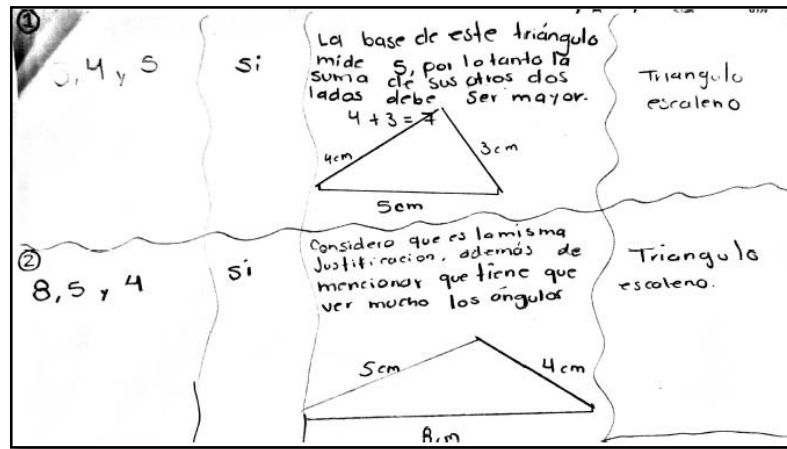 ①
3, 4 y 5
Si
La base de este triángulo
mide 5, por lo tanto la
suma de sus otros dos
lados debe ser mayor.
4 + 3 = 7
4cm
3cm
5cm
Triangulo
escaleno
②
8, 5 y 4
Si
Considero que es la misma
Justificacion, además de
mencionar que tiene que
ver mucho los ángulos
5cm
4cm
Triangulo
escaleno.